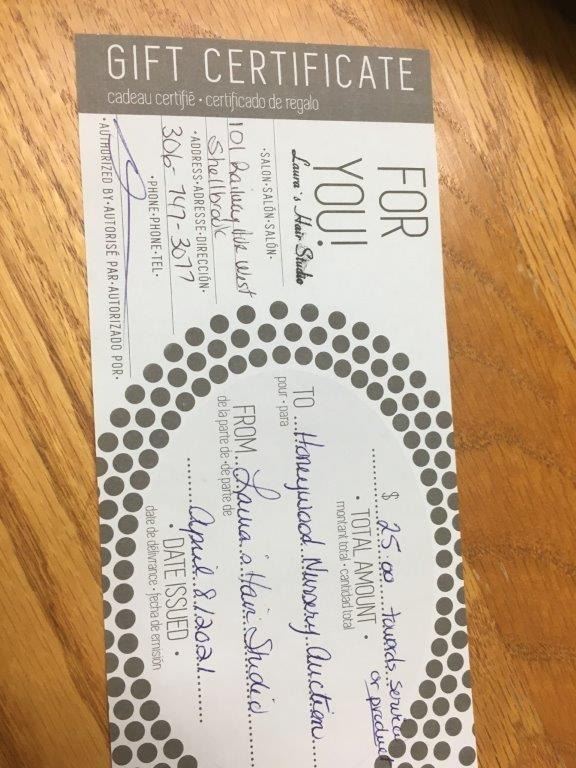 GIFT CERTIFICATE
cadeau certifié • certificado de regalo
FOR
YOU!
Laura's Hair Studio
•SALON•SALÓN•SALÓN•
101 Railway Ave West
Shellbrook
•ADDRESS•ADRESSE•DIRECCIÓN•
306-747-3077
•PHONE•PHONE•TEL•
•AUTHORIZED BY•AUTORISÉ PAR•AUTORIZADO POR•
$ 25.00 towards service
or product
• TOTAL AMOUNT •
montant total • cantidad total
TO Honeywood Nursery Auction
pour • para
FROM Laura's Hair Studio
de la parte de • de parte de
April 8/2021
• DATE ISSUED •
date de délivrance • fecha de emisión